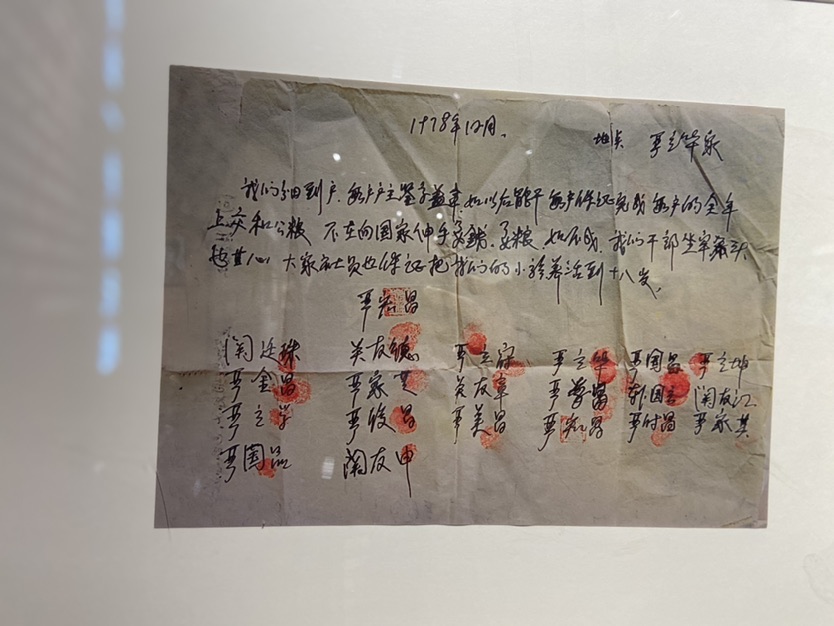 1978年12月、
地点 严立华家
我们分田到户、每户户主签字盖章、如以后能干每户保证完成每户的全年
上交和公粮 不在向国家伸手要钱、要粮、如不成、我们干部坐牢杀头
也甘心、大家社员也保证把我们的小孩养活到十八岁、
严宏昌
关廷珠 关友德 严立符 严立华 严国昌 严立坤
严金昌 严家芝 关友章 严学昌 韩国云 关友江
严立学 严俊昌 严美昌 严宏昌 严付昌 严家其
严国品 关友申